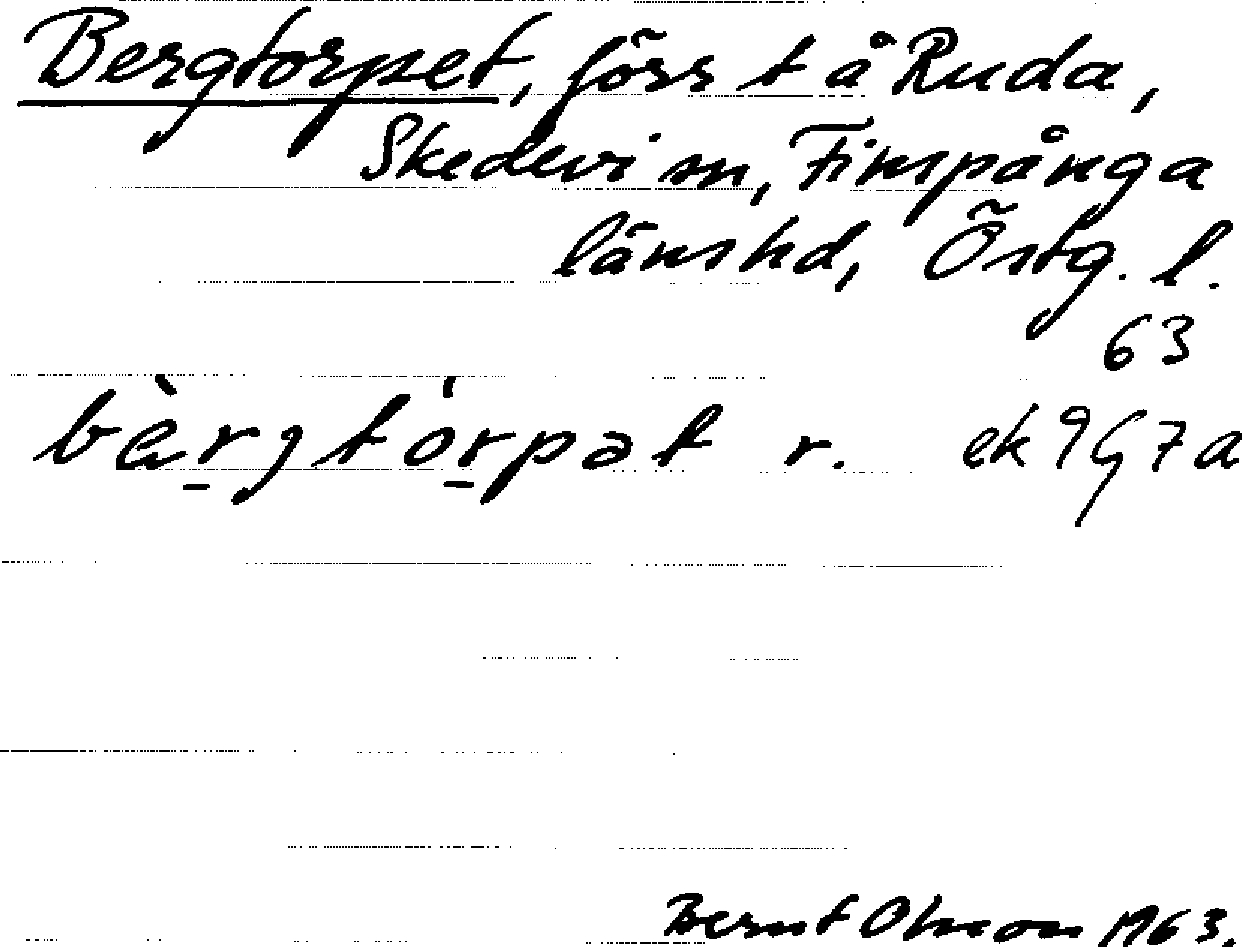 Bergtorpet, förs t å Ruda,
Skedevi sn, Finspånga
länshd, Östg. l.
63
bæ̀rgtórpət r. ek 9G7a
Bernt Olsson 1963.